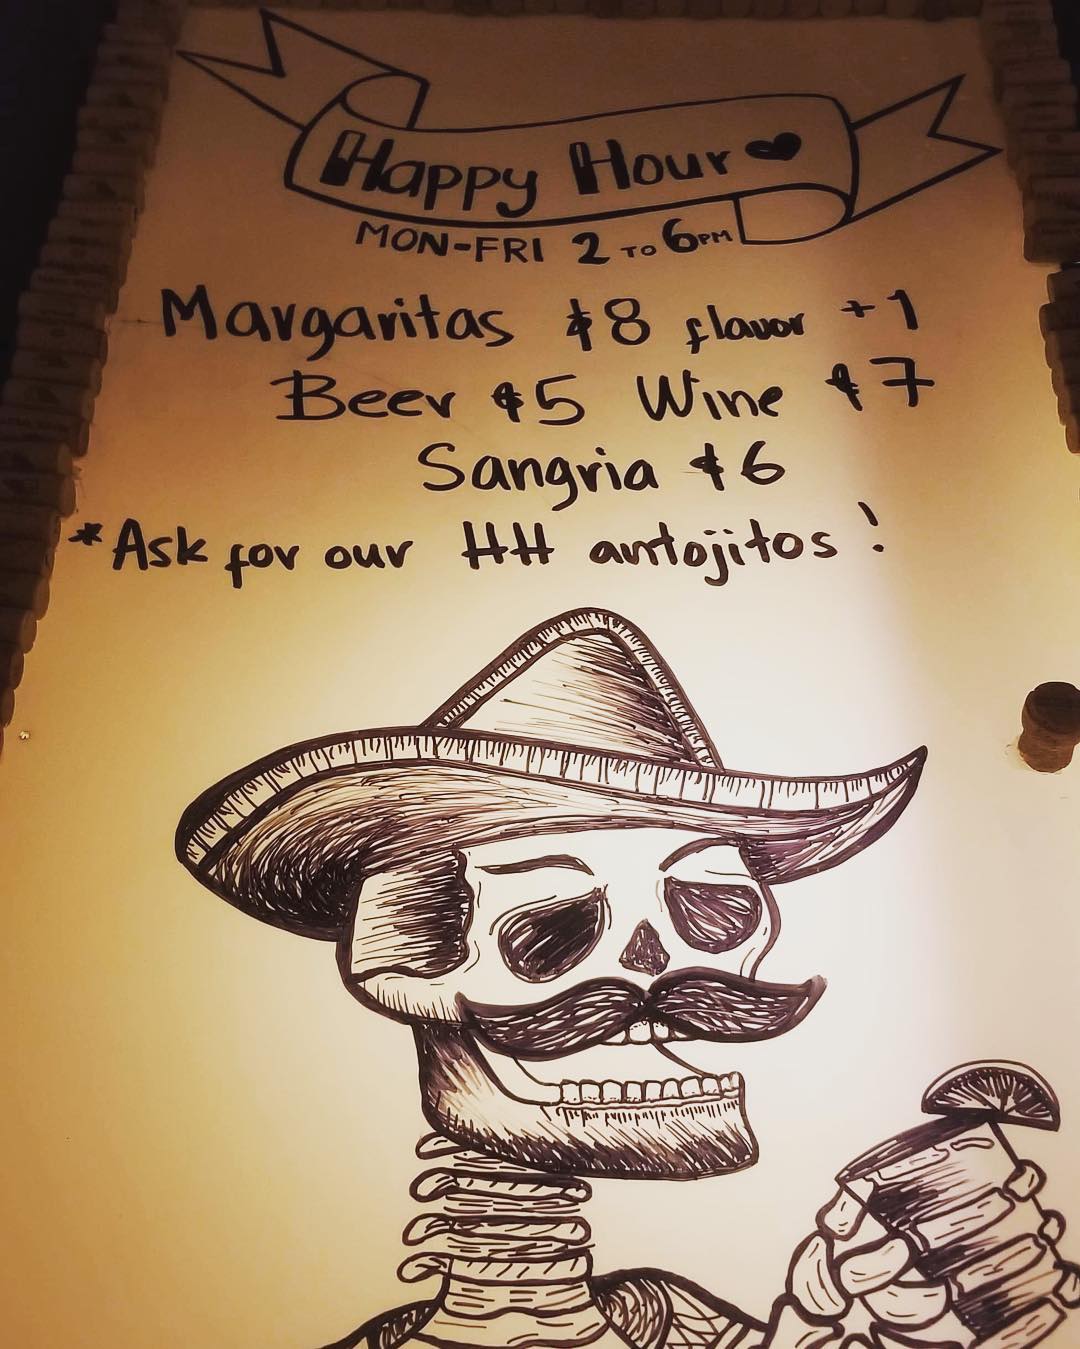 Happy Hour
MON-FRI 2 TO 6PM
Margaritas $8 flavor +1
Beer $5 Wine $7
Sangria $6
*Ask for our HH antojitos!